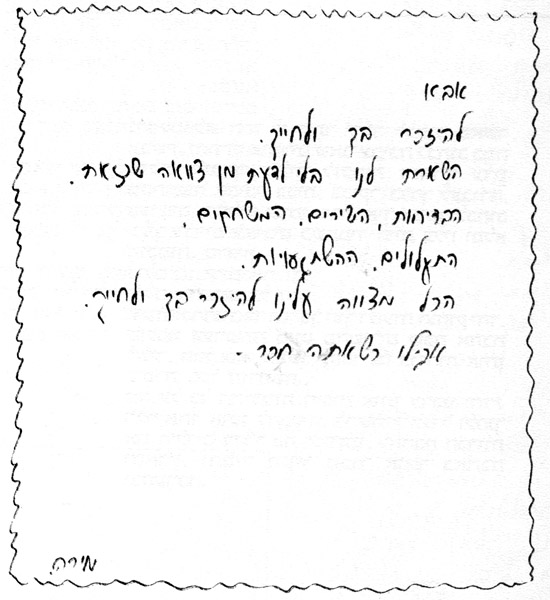 אבא
להיזכר בך ולחייך.
השארת לנו בלי לדעת מן צוואה שכזאת.
הבדיחות, השירים, המשחקים,
התעלולים, ההשתגעויות.
הכל מצווה עלינו להיזכר בך ולחייך.
אפילו כשאתה חסר.
מירה